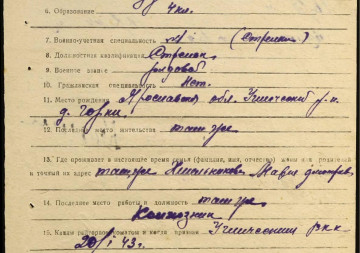 6. Образование 4 кл.
7. Военно-учетная специальность №1 (Стрелки)
8. Должностная квалификация Стрелок
9. Военное звание рядовой
10. Гражданская специальность Нет.
11. Место рождения Ярославская обл. Угличский р-н
д. Горки
12. Постоянное место жительства там же
13. Где проживает в настоящее время семья (фамилия, имя, отчество) жены или родителей
и точный их адрес там же Мария Дмитриев
14. Последнее место работы и должность там же
Колхозник
15. Каким райвоенкоматом и когда призван Угличским рвк
20/I 43 г.